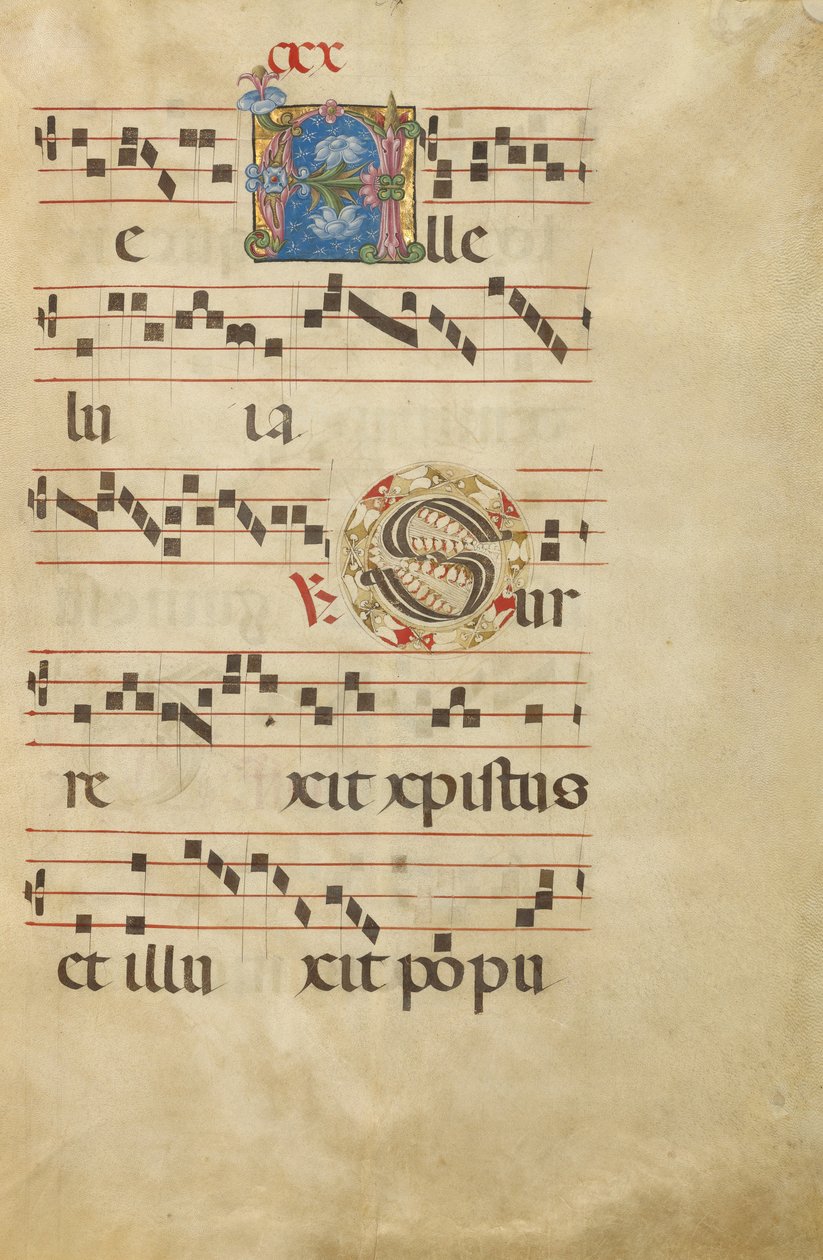 cxx
e Alle
lu ia
℣ Sur
re xit xpiſtus
et illu xit popu